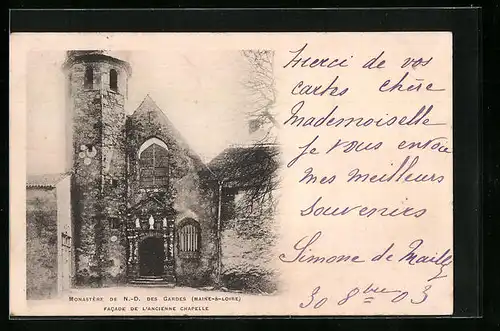 Merci de vos
cartes chère
Mademoiselle
Je vous envoie
mes meilleurs
souvenirs
Simone de Mailly
30 8bre 03
MONASTÈRE DE N.-D. DES GARDES (MAINE-&-LOIRE)
FAÇADE DE L'ANCIENNE CHAPELLE